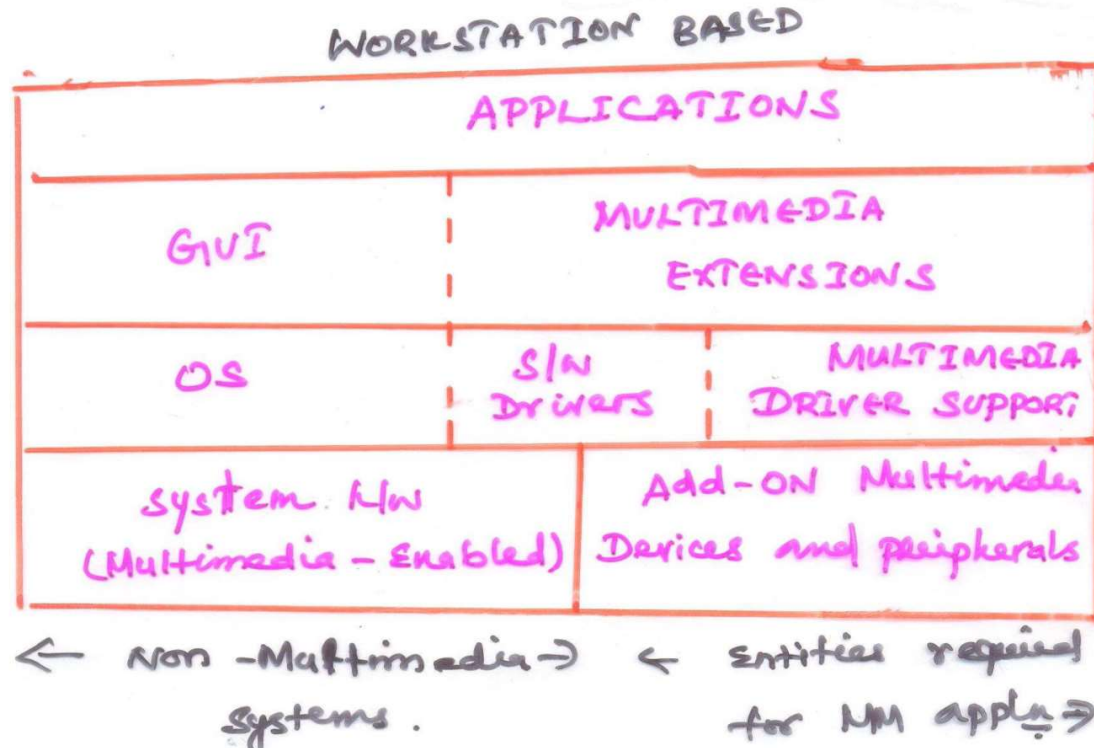 WORKSTATION BASED
APPLICATIONS
GUI
MULTIMEDIA
EXTENSIONS
OS
S/W
Drivers
MULTIMEDIA
DRIVER SUPPORT
system H/W
(Multimedia - Enabled)
Add-ON Multimedia
Devices and peripherals
← Non -Multimedia →
systems.
← Entities required
for MM appln →